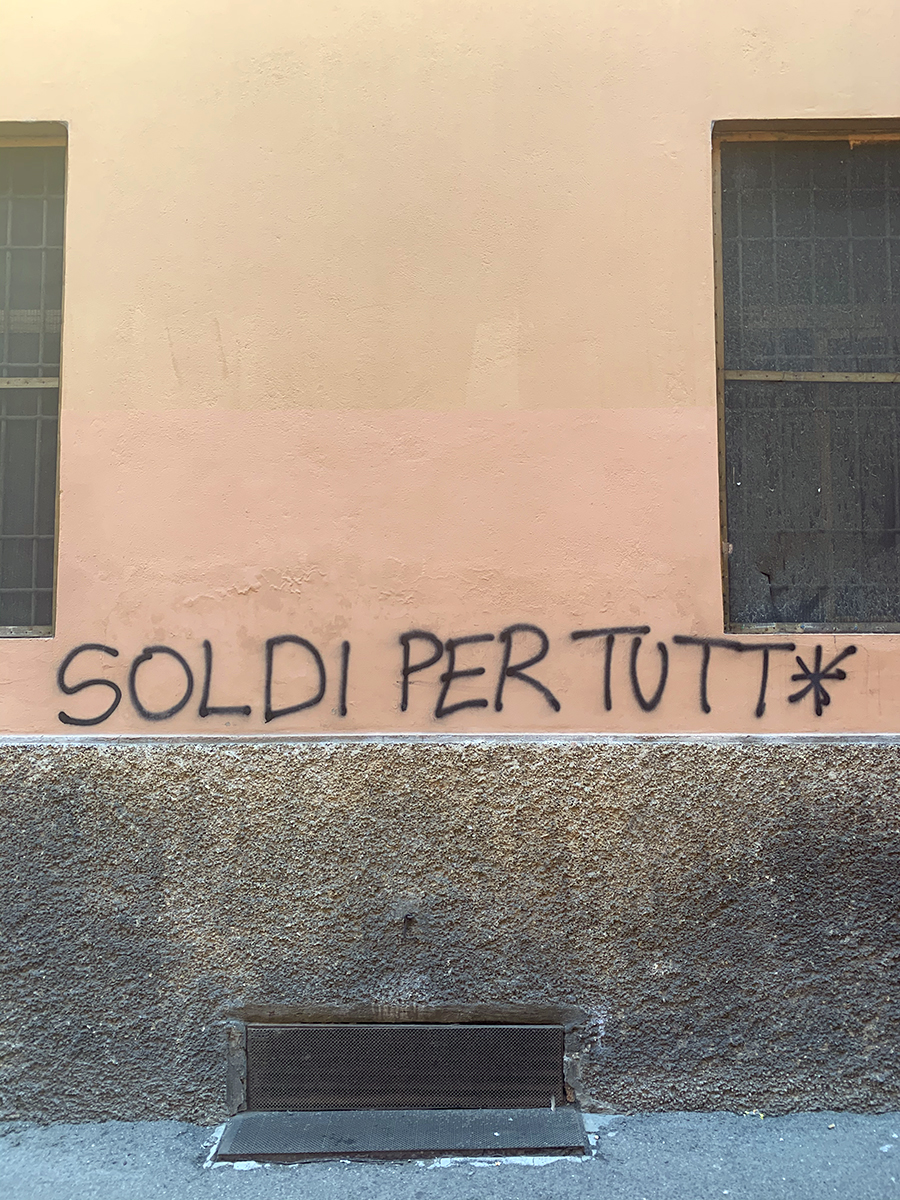 SOLDI PER TUTT*